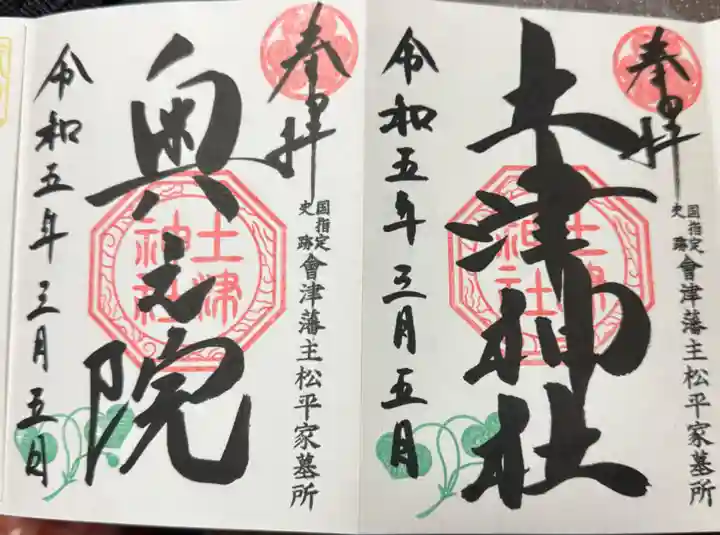 奉拝
土津神社
土津
神社
国指定
史跡
會津藩主松平家墓所
令和五年三月五日
奉拝
奥之院
土津
神社
国指定
史跡
會津藩主松平家墓所
令和五年三月五日